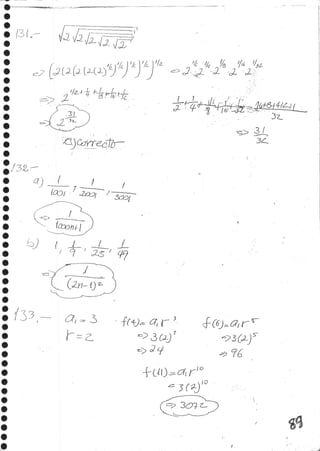 131.- √2√2√2√2√2
=> (2(2(2(2(2)^½)^½)^½)^½)^½ => 2^½ 2^¼ 2^⅛ 2^1/16 2^1/32
=> 2^½+¼+⅛+1/16+1/32
1/2 + 1/4 + 1/8 + 1/16 + 1/32 = 16+8+4+2+1/32
=> 2^31/32
=> 31/32
a) correcto
132.-
a) 1/1001, 1/2001, 1/3001
=> 1/1000n+1
b) 1, 1/9, 1/25, 1/49
=> 1/(2n-1)²
133.- a₁ = 3 f(4) = a₁r³ f(6) = a₁r⁵
r = 2 => 3(2)³ => 3(2)⁵
=> 24 => 96
f(11) = a₁r¹⁰
= 3(2)¹⁰
=> 3072
89